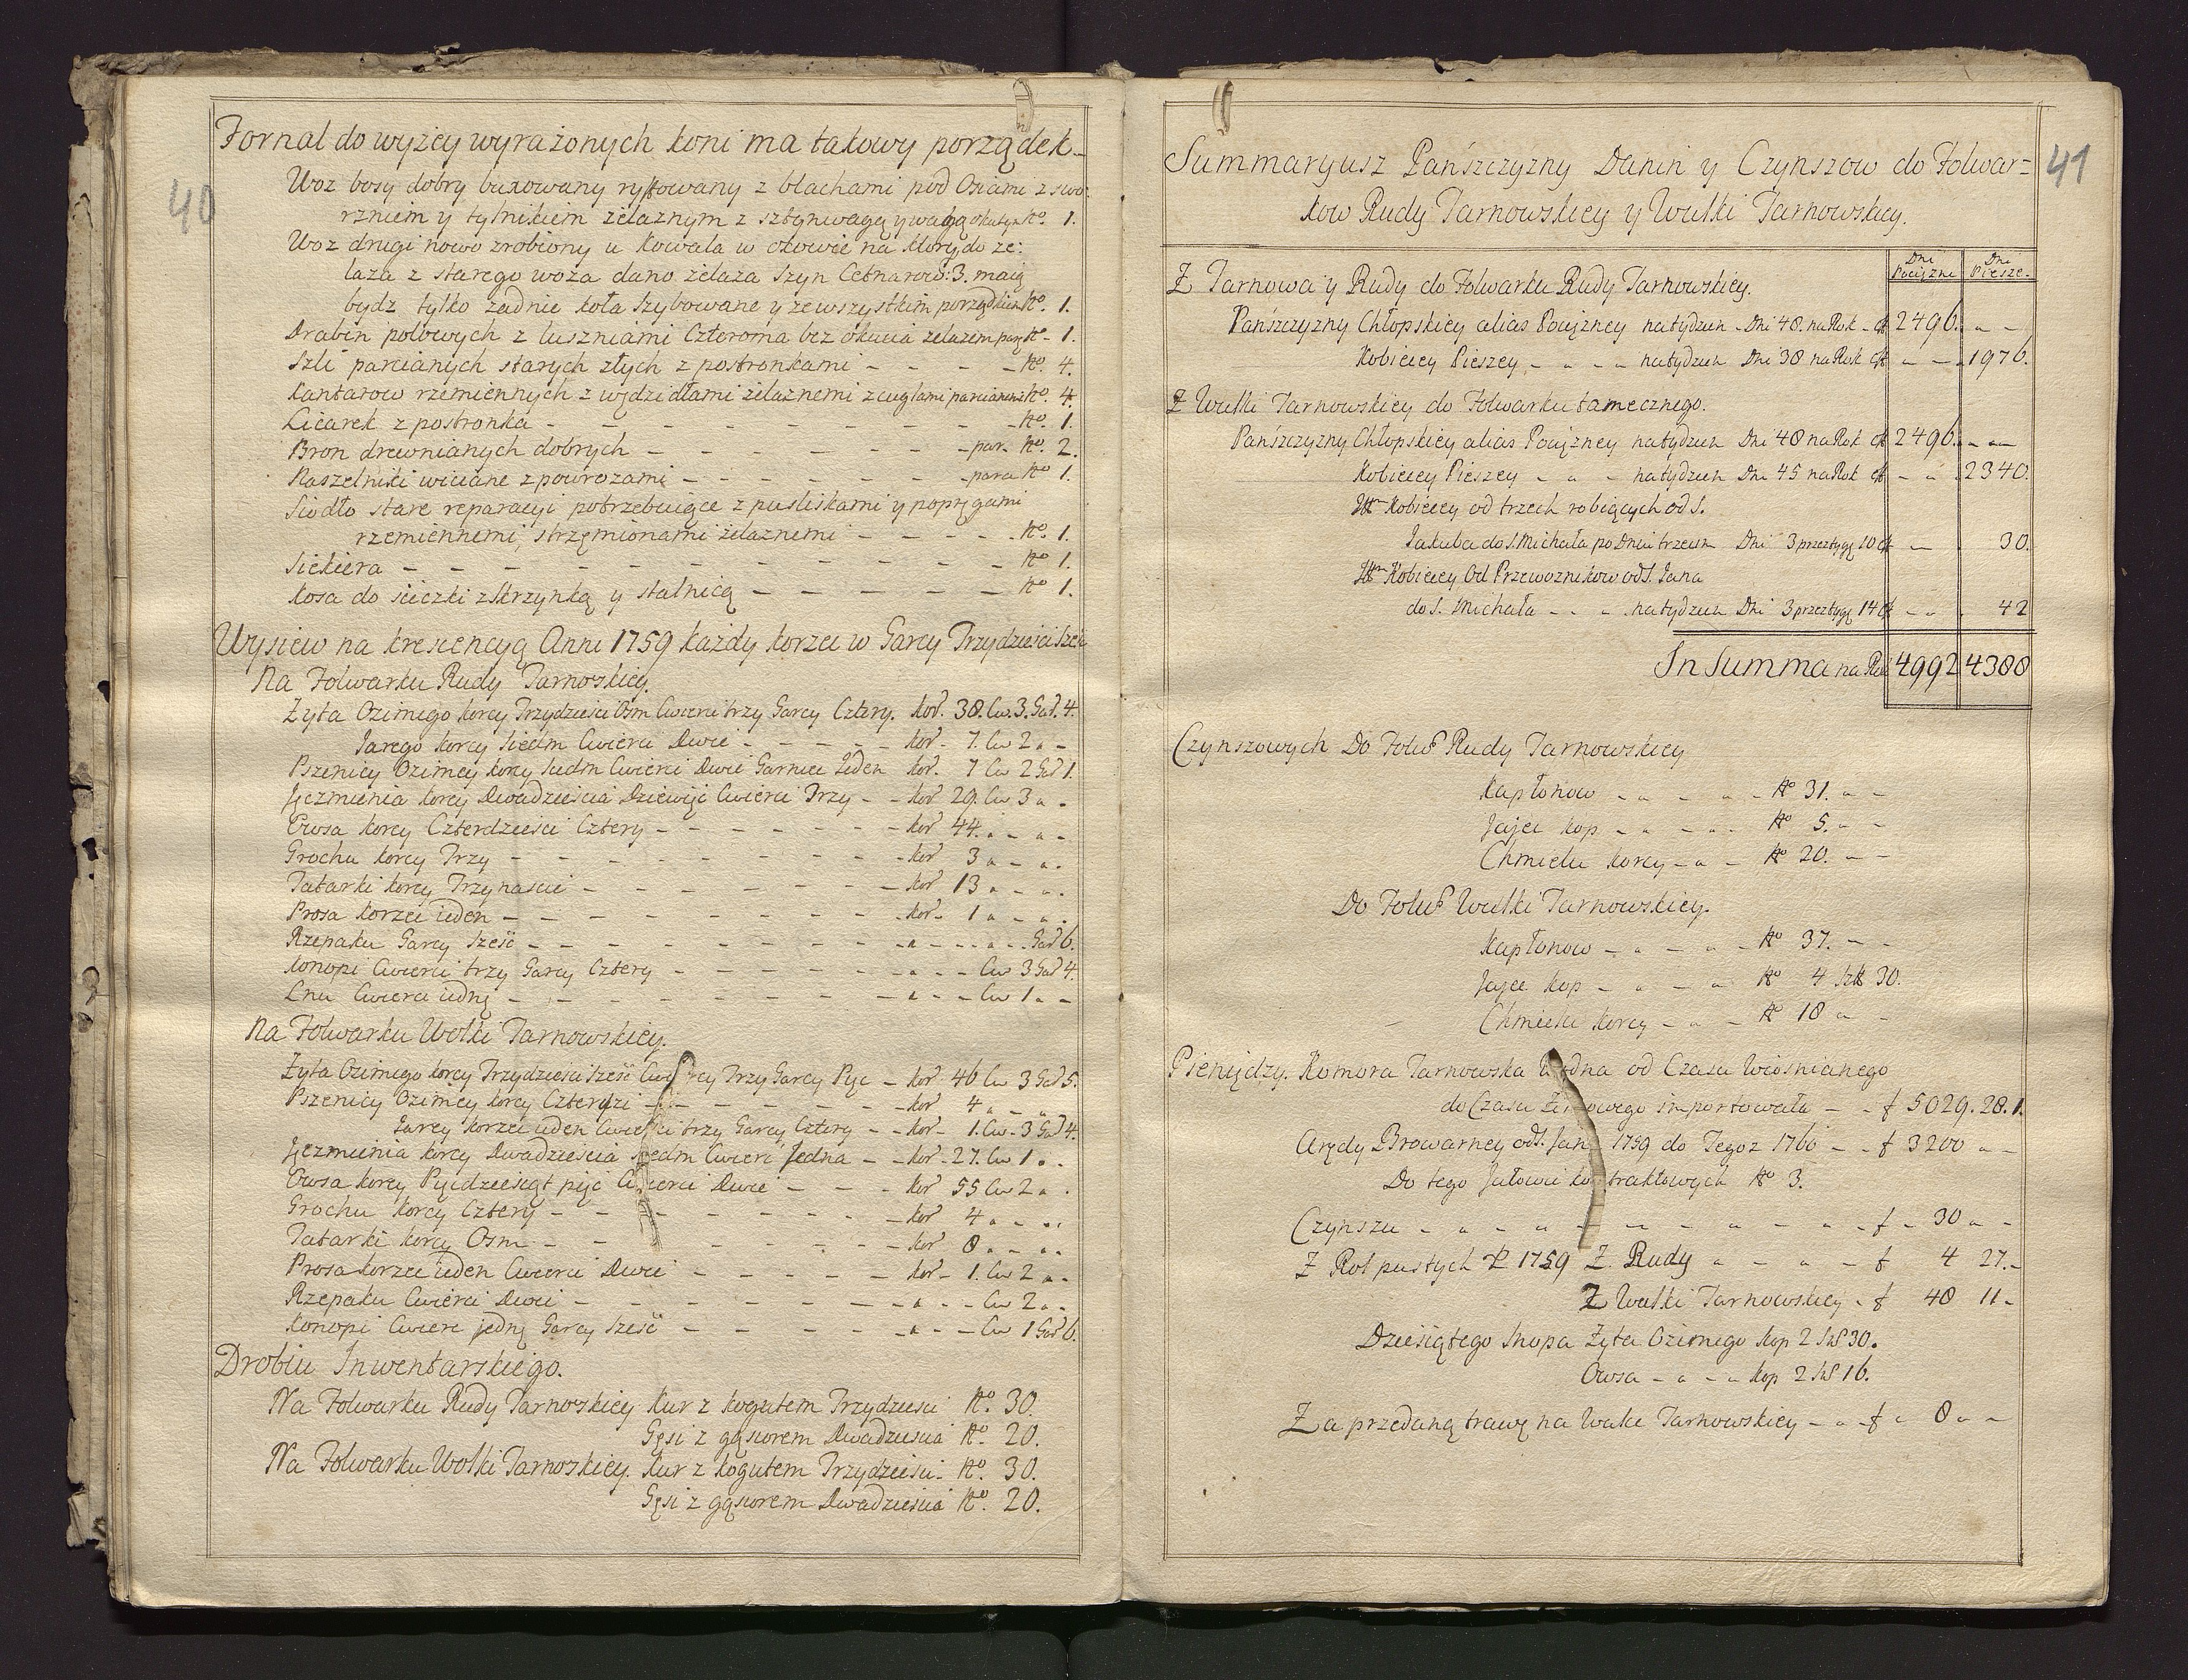 40
Fornal do wyżey wyrażonych koni ma takowy porządek
Woz bosy dobry buxowany ryfowany z blachami pod Osiami z swo:
rzniem y tylnikiem żelaznym z sztynwagą y wagą okutym No. 1.
Woz drugi nowo zrobiony u Kowala w okowie na ktory do że:
laza z starego woza dano żelaza szyn Cetnarow: 3. maią
bydz tylko zadnie koła szybowane y ze wszystkim porządkiem No. 1.
Drabin polowych z luszniami Czteroma bez okucia żelazem para No - 1.
Szli parcianych starych złych z postronkami - - - - No. 4.
Kantarow rzemiennych z wędzidłami żelaznemi z cuglami parcianemi No. 4.
Licarek z postronka - - - - - - - No. 1.
Bron drewnianych dobrych - - - - - - par. No. 2.
Naszelniki wiciane z powrozami - - - - - - para No 1.
Siodło stare reparacyi potrzebuiące z pusliskami y popręgami
rzemiennemi, strzemionami żelaznemi - - - - No. 1.
Siekiera - - - - - - - - - No 1.
Kosa do sieczki z skrzynką y stalnicą - - - - - No 1.
Wysiew na krescencyą Anni 1759 każdy korzec w Garcy Trzydzieści Sześć
Na Folwarku Rudy Tarnowskiey.
Żyta Ozimego korcy Trzydzieści Osm Cwierci trzy Garcy Cztery. Kor. 38. Cw. 3. Gar. 4.
Jarego korcy Siedm Cwierci Dwie - - - - - kor - 7. Cw 2 - -
Pszenicy Ozimey korcy Siedm Cwierci Dwie Garniec Jeden kor. 7 Cw 2 Gar 1.
Jęczmienia korcy Dwadzieścia Dziewięć Cwierci Trzy - - kor 29. Cw 3 - -
Owsa korcy Czterdzieści Cztery - - - - - - - kor 44. - - -
Grochu korcy Trzy - - - - - - - kor 3 - - -
Tatarki korcy Trzynaście - - - - - - - kor 13 - - -
Prosa korzec ieden - - - - - - - kor - 1 - - -
Rzepaku Garcy Sześć - - - - - - - - - - Gar 6.
Konopi Cwierci trzy Garcy Cztery - - - - - - - - Cw 3 Gar 4.
Lnu Cwierci iedną - - - - - - - - - Cw 1 - -
Na Folwarku Wolki Tarnowskiey.
Żyta Ozimego korcy Trzydzieści Sześć Cwi rcy Trzy Garcy Pięć - kor 46 Cw 3 Gar 5.
Pszenicy Ozimey korcy Czterdzi - - - - - - kor 4 - - -
Jarey korzec ieden Cwierci trzy Garcy Cztery - - kor - 1. Cw - 3 Gar 4.
Jęczmienia korcy Dwadzieścia Siedm Cwierć Jedna - - kor - 27. Cw 1 - -
Owsa korcy Pięćdziesiąt pięć Cwierci Dwie - - - kor 55 Cw 2 - -
Grochu korcy Cztery - - - - - - - kor 4 - - -
Tatarki korcy Osm - - - - - - - kor 8 - - -
Prosa korzec ieden Cwierci Dwie - - - - - kor - 1. Cw 2 - -
Rzepaku Cwierci Dwie - - - - - - - - - Cw 2 - -
Konopi Cwierć jedną Garcy Sześć - - - - - - - Cw 1 Gar 6.
Drobiu Inwentarskiego.
Na Folwarku Rudy Tarnowskiey Kur z kogutem Trzydzieści No. 30.
Gęsi z gąsiorem Dwadzieścia No. 20.
Na Folwarku Wolki Tarnowskiey. Kur z kogutem Trzydzieści - No. 30.
Gęsi z gąsiorem Dwadzieścia No. 20.
41
Summaryusz Pańszczyzny Danin y Czynszow do Folwar=
kow Rudy Tarnowskiey y Wulki Tarnowskiey.
Dni Pociązne Dni Piesze
Z Tarnowa y Rudy do Folwarku Rudy Tarnowskiey.
Pańszczyzny Chłopskiey alias Pociązney na tydzień - Dni 48. na Rok - 2496. - -
Kobiecey Pieszey - - - - na tydzień Dni 38 na Rok - - 1976.
Z Wulki Tarnowskiey do Folwarku tamecznego.
Pańszczyzny Chłopskiey alias Pociązney na tydzień Dni 48 na Rok 2496. - -
Kobiecey Pieszey - - - na tydzień Dni 45 na Rok - - 2340.
Itm Kobiecey od trzech robiących od S.
Jakuba do S. Michała po Dniu trzecim Dni 3 przez tyg 10 - - 30.
Itm Kobiecey Od Przewoznikow od S. Jana
do S. Michała - - - na tydzień Dni 3 przez tyg 14 - - 42
In Summa na Rok 4992 4388
Czynszowych Do Folw Rudy Tarnowskiey
Kapłonow - - - - - No 31. - -
Jajec kop - - - - - No 5. - -
Chmielu korcy - - - No 20. - -
Do Folw Wulki Tarnowskiey.
Kapłonow - - - - - No 37. - -
Jajec kop - - - - No 4 szk 30.
Chmielu korcy - - - No 18 - -
Pieniędzy. Komora Tarnowska Wodna od Czasu Wiosnianego
do Czasu Zimowego importowała - - f 5029. 28. 1.
Arędy Browarney od S. Jan 1759 do Tegoz 1760 - - f 3200 - -
Do tego Jałowic kontraktowych No 3.
Czynszu - - - - - - - - - - f - 30 - -
Z Rol pustych P 1759 Z. Rudy - - - - f 4 27. -
Z Wulki Tarnowskiey - f 48 11 -
Dziesiątego Snopa Żyta Ozimego kop 2 Sn 30.
Owsa - - - - kop 2 Sn 16.
Za przedaną trawę na Wulce Tarnowskiey - - - f - 8 - -